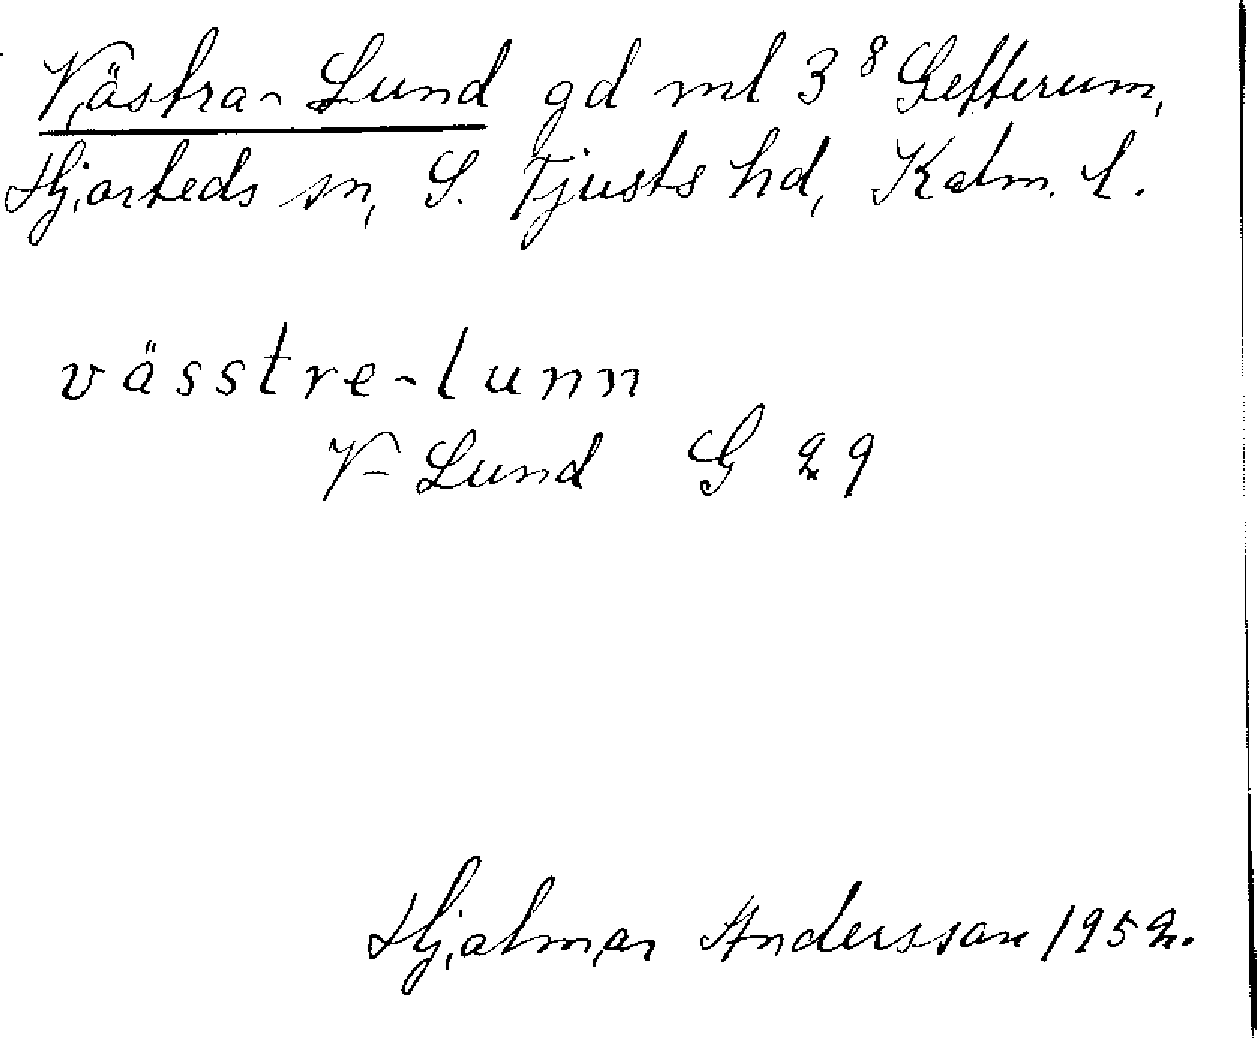 Västra-Lund gd ml 3⁸ Gefferum,
Hjorteds sn, S. Tjusts hd, Kalm. l.
vässtre-lunn
V-Lund G 29
Hjalmar Andersson 1952.